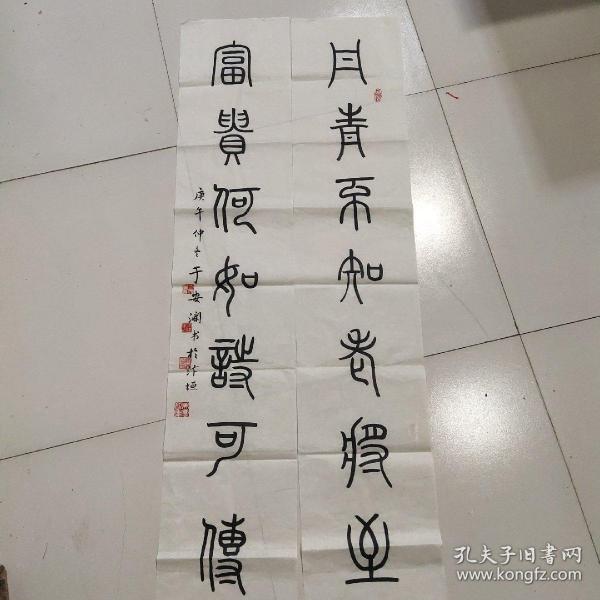 丹青不知老將至
富貴何如詩可傳
庚午仲冬于安瀾书於汴垣
孔夫子旧書网
www.kongfz.com